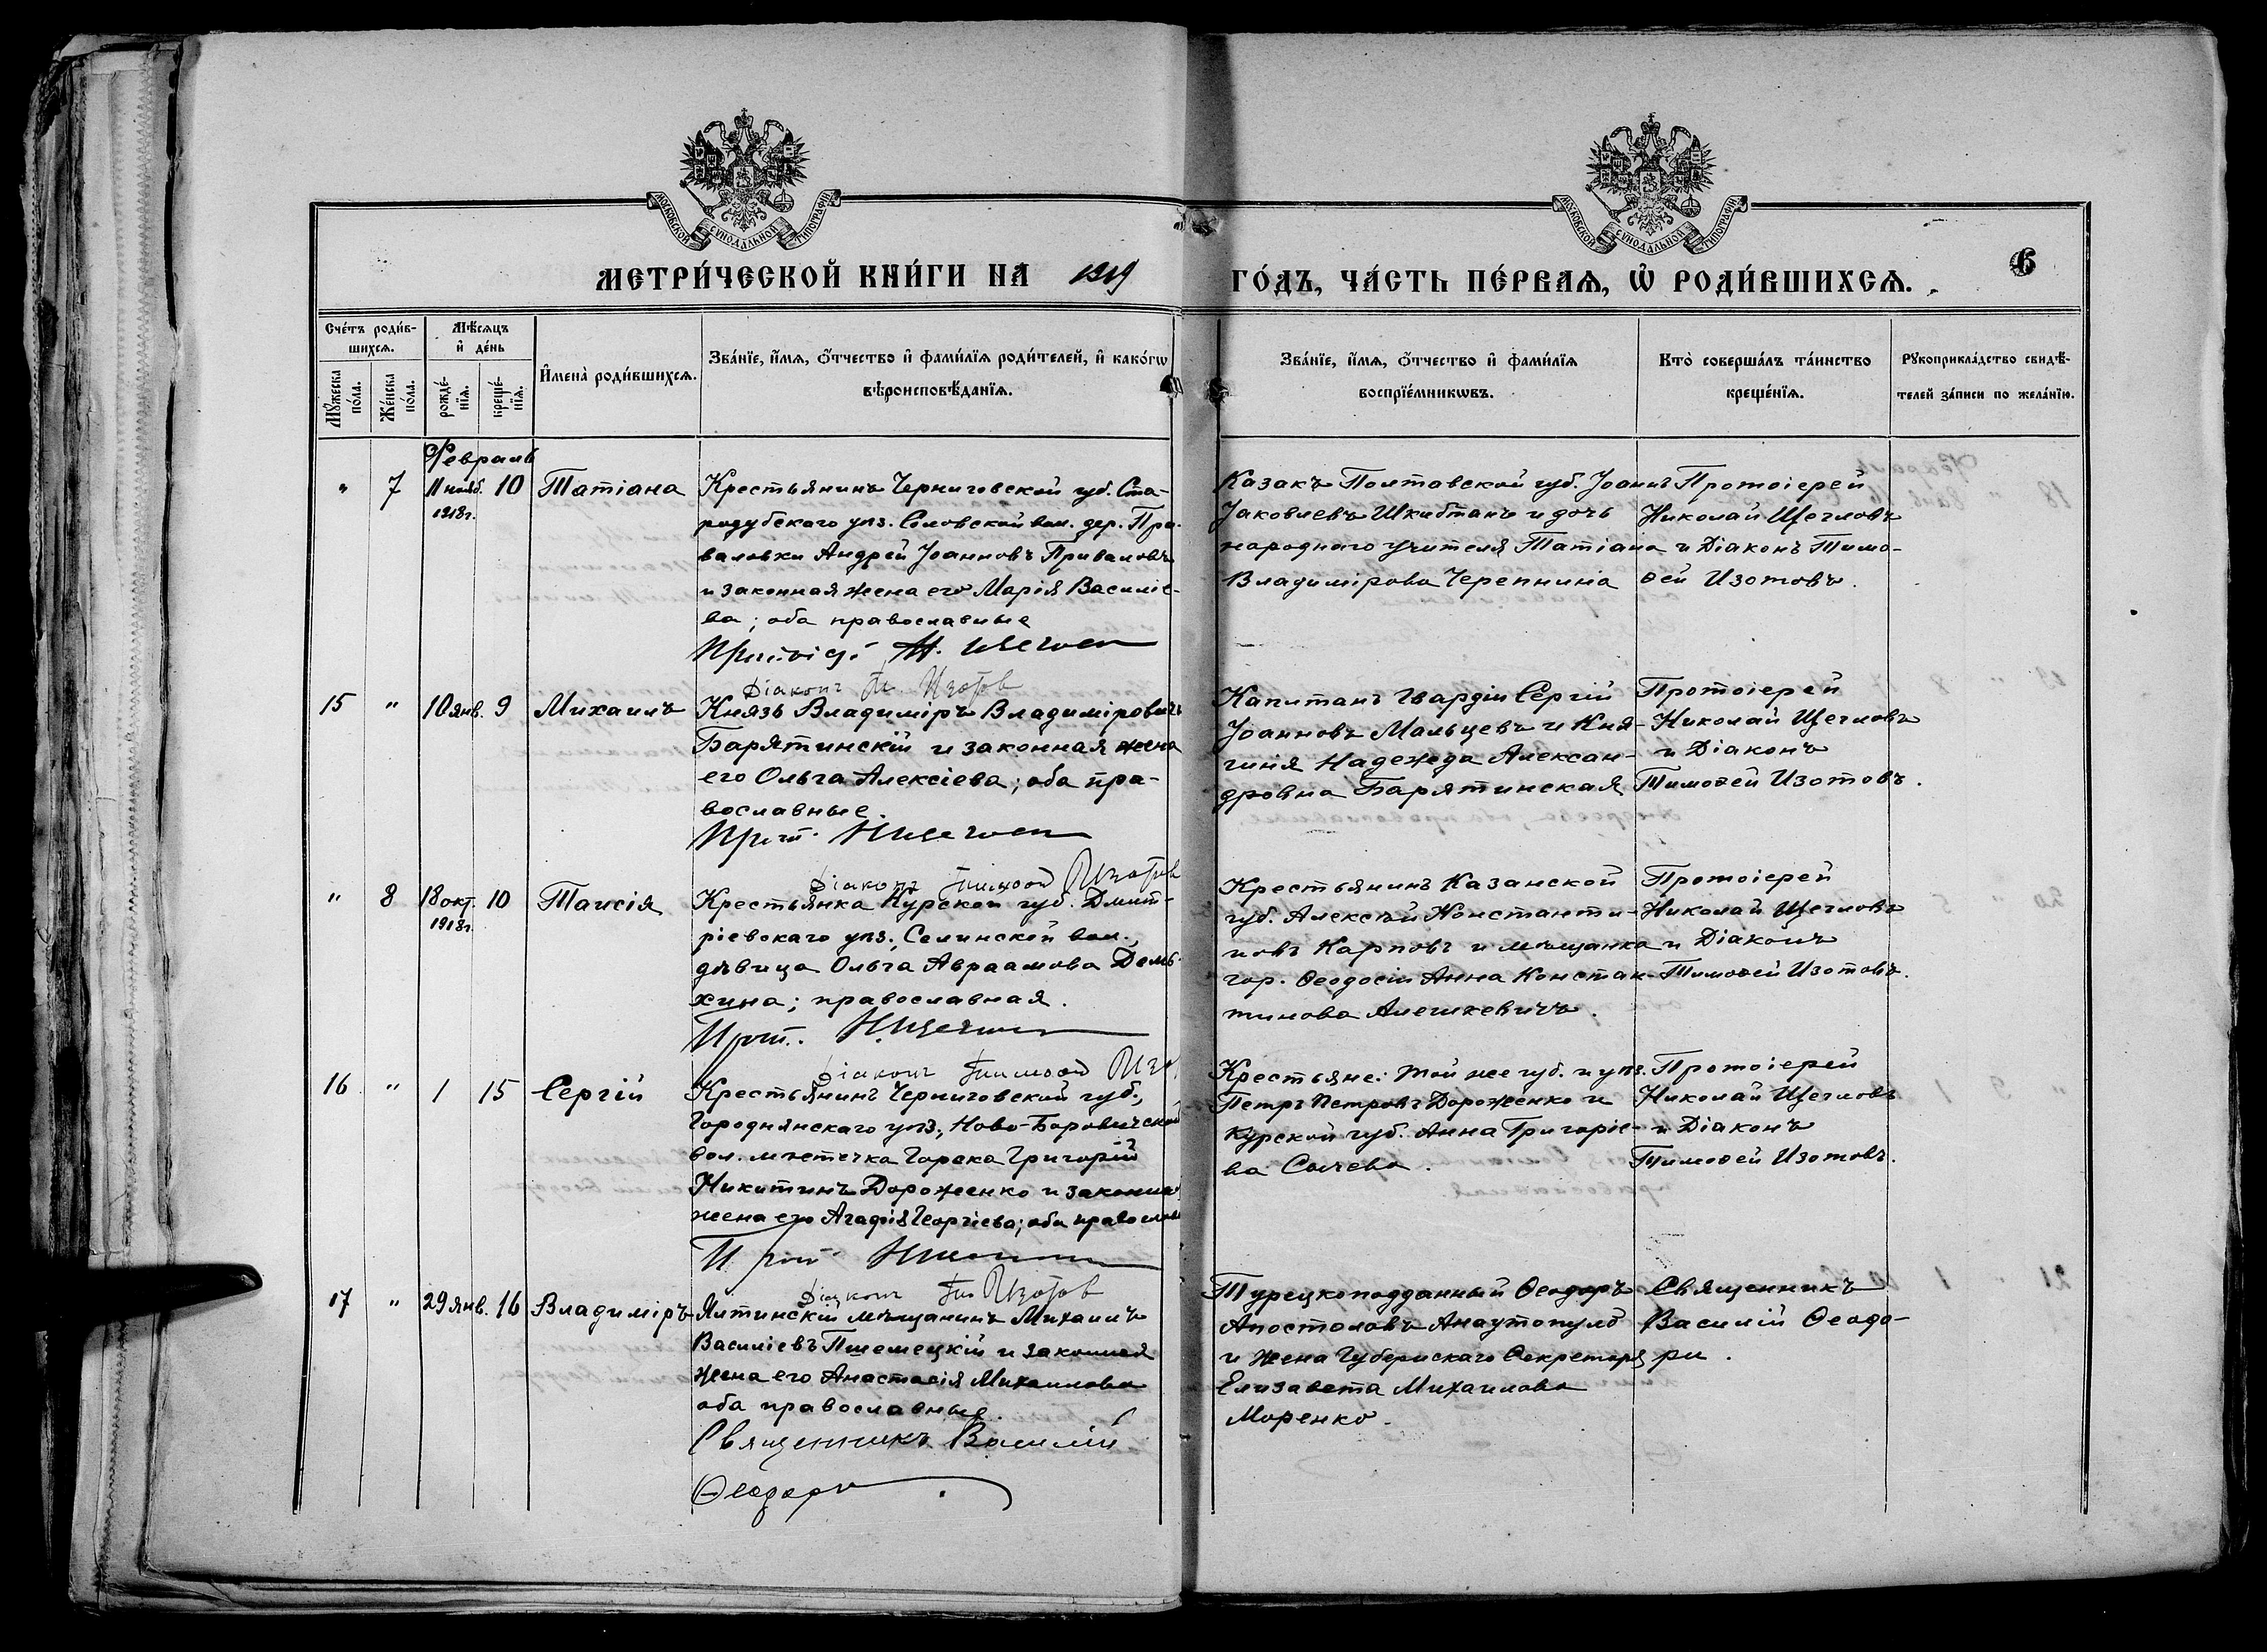 МОСКОВСКОЙ СУНОДАЛЬНОЙ ТИПОГРАФІИ
МОСКОВСКОЙ СУНОДАЛЬНОЙ ТИПОГРАФІИ
МЕТРИ́ЧЕСКОЙ КНИ́ГИ НА 1919 ГО́ДЪ, ЧА́СТЬ ПЕ́РВАѦ, Ѡ҆ РОДИ́ВШИХСѦ.
6
Сче́тъ роди́в-
шихсѧ.
Мѣ́сѧцъ
и҆ де́нь
И҆мена̀ роди́вшихсѧ.
Зва́нїе, и҆́мѧ, о҆́тчество и҆ фами́лїѧ роди́телей, и҆ како́гѡ
вѣроисповѣ́данїѧ.
Зва́нїе, и҆́мѧ, о҆́тчество и҆ фами́лїѧ
воспрїе́мникѡвъ.
Кто̀ соверша́лъ та́инство
креще́нїѧ.
Рꙋкоприкла́дство свидѣ́-
телей за́писи по жела́нїю.
Мꙋ́жеска
по́ла.
Же́нска
по́ла.
рожде́-
нїѧ.
креще́-
нїѧ.
Февраль
" 7 11 нояб. 10 Татіана
1918г.
Крестьянинъ Черниговской губ. Ста-
родубскаго уѣз. Соловской вол. дер. При-
валовки Андрей Іоанновъ Приваловъ
и законная жена его Марія Василіе-
ва; оба православные
Діаконъ Ти. Изотов
Казакъ Полтавской губ. Іоаннъ
Іаковлевъ Шкибтанъ и дочь
народнаго учителя Татіана
Владимірова Черепнина
Протоіерей
Николай Щегловъ
и Діаконъ Тимо-
ѳей Изотовъ.
15 " 10 янв. 9 Михаилъ
Князь Владиміръ Владиміровичъ
Барятинскій и законная жена
его Ольга Алексіева; оба пра-
вославные.
Діаконъ Тимоѳей Изотов
Капитанъ Гвардіи Сергій
Іоанновъ Мальцевъ и Кня-
гиня Надежда Алексан-
дровна Барятинская
Протоіерей
Николай Щегловъ
и Діаконъ
Тимоѳей Изотовъ.
" 8 18 окт. 10 Таисія
1918г.
Крестьянка Курской губ. Дмит-
ріевскаго уѣз., Селинской вол.,
дѣвица Ольга Авраамова Демь-
хина; православная.
Прот.
Діаконъ Тимоѳей
Крестьянинъ Казанской
губ. Алексѣй Константи-
новъ Карповъ и мѣщанка
гор. Ѳеодосіи Анна Констан-
тинова Алешкевичъ.
Протоіерей
Николай Щегловъ
и Діаконъ
Тимоѳей Изотовъ.
16 " 1 15 Сергій
Крестьянинъ Черниговской губ.,
Городнянскаго уѣз., Ново-Боровичской
вол. мѣстечка Горска Григорій
Никитинъ Дороженко и законная
жена его Агафія Георгіева; оба православ
Прот
Діаконъ Ти Изотов
Крестьяне: той же губ. и уѣз.
Петръ Петровъ Дороженко и
Курской губ. Анна Григоріе-
ва Сычева.
Протоіерей
Николай Щегловъ
и Діаконъ
Тимоѳей Изотовъ.
17 " 29 янв. 16 Владиміръ
Ялтинскій мѣщанинъ Михаилъ
Василіевъ Пшемецкій и законная
жена его Анастасія Михаилова
оба православные.
Священникъ Василій
Ѳеодори
Турецкоподданный Ѳеодоръ
Апостоловъ Анаутопуло
и жена Губернскаго Секретаря
Елизавета Михаилова
Моренко.
Священникъ
Василій Ѳеодо-
ри.